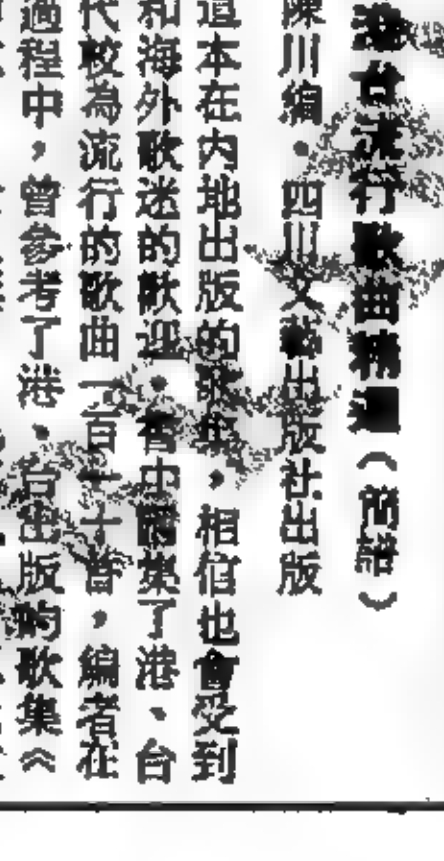 港台流行歌曲精選(簡譜)
陳川編・四川文藝出版社出版
這本在內地出版的歌集,相信也會受到
和海外歌迷的歡迎。書中選集了港、台
代較為流行的歌曲一百一十首,編者在
過程中,曾參考了港・台出版的歌集《